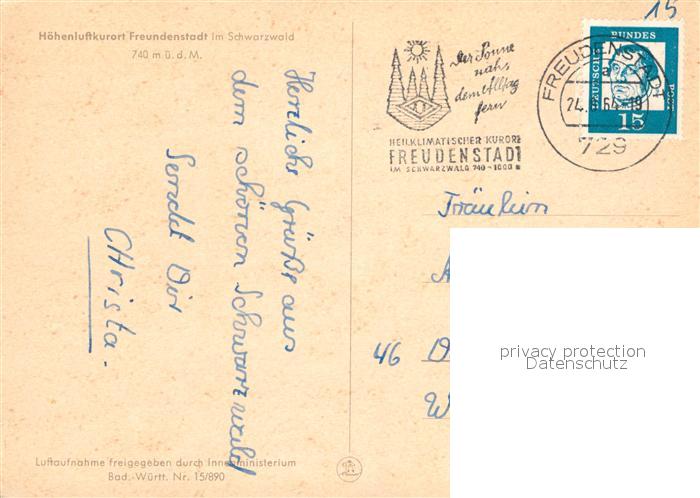 Höhenluftkurort Freundenstadt im Schwarzwald
740 m ü. d. M.
Herzliche Grüße aus
dem schönen Schwarzwald
Sendet Dir
Christa.
Luftaufnahme freigegeben durch Innenministerium
Bad.-Württ. Nr. 15/890
15
Der Sonne
nah,
dem Alltag
fern
HEILKLIMATISCHER KURORT
FREUDENSTADT
IM SCHWARZWALD 740-1000 m
FREUDENSTADT
a
24. 64-19
729
DEUTSCHE
BUNDES
POST
15
Fräulein
A
46 D
W
privacy protection
Datenschutz